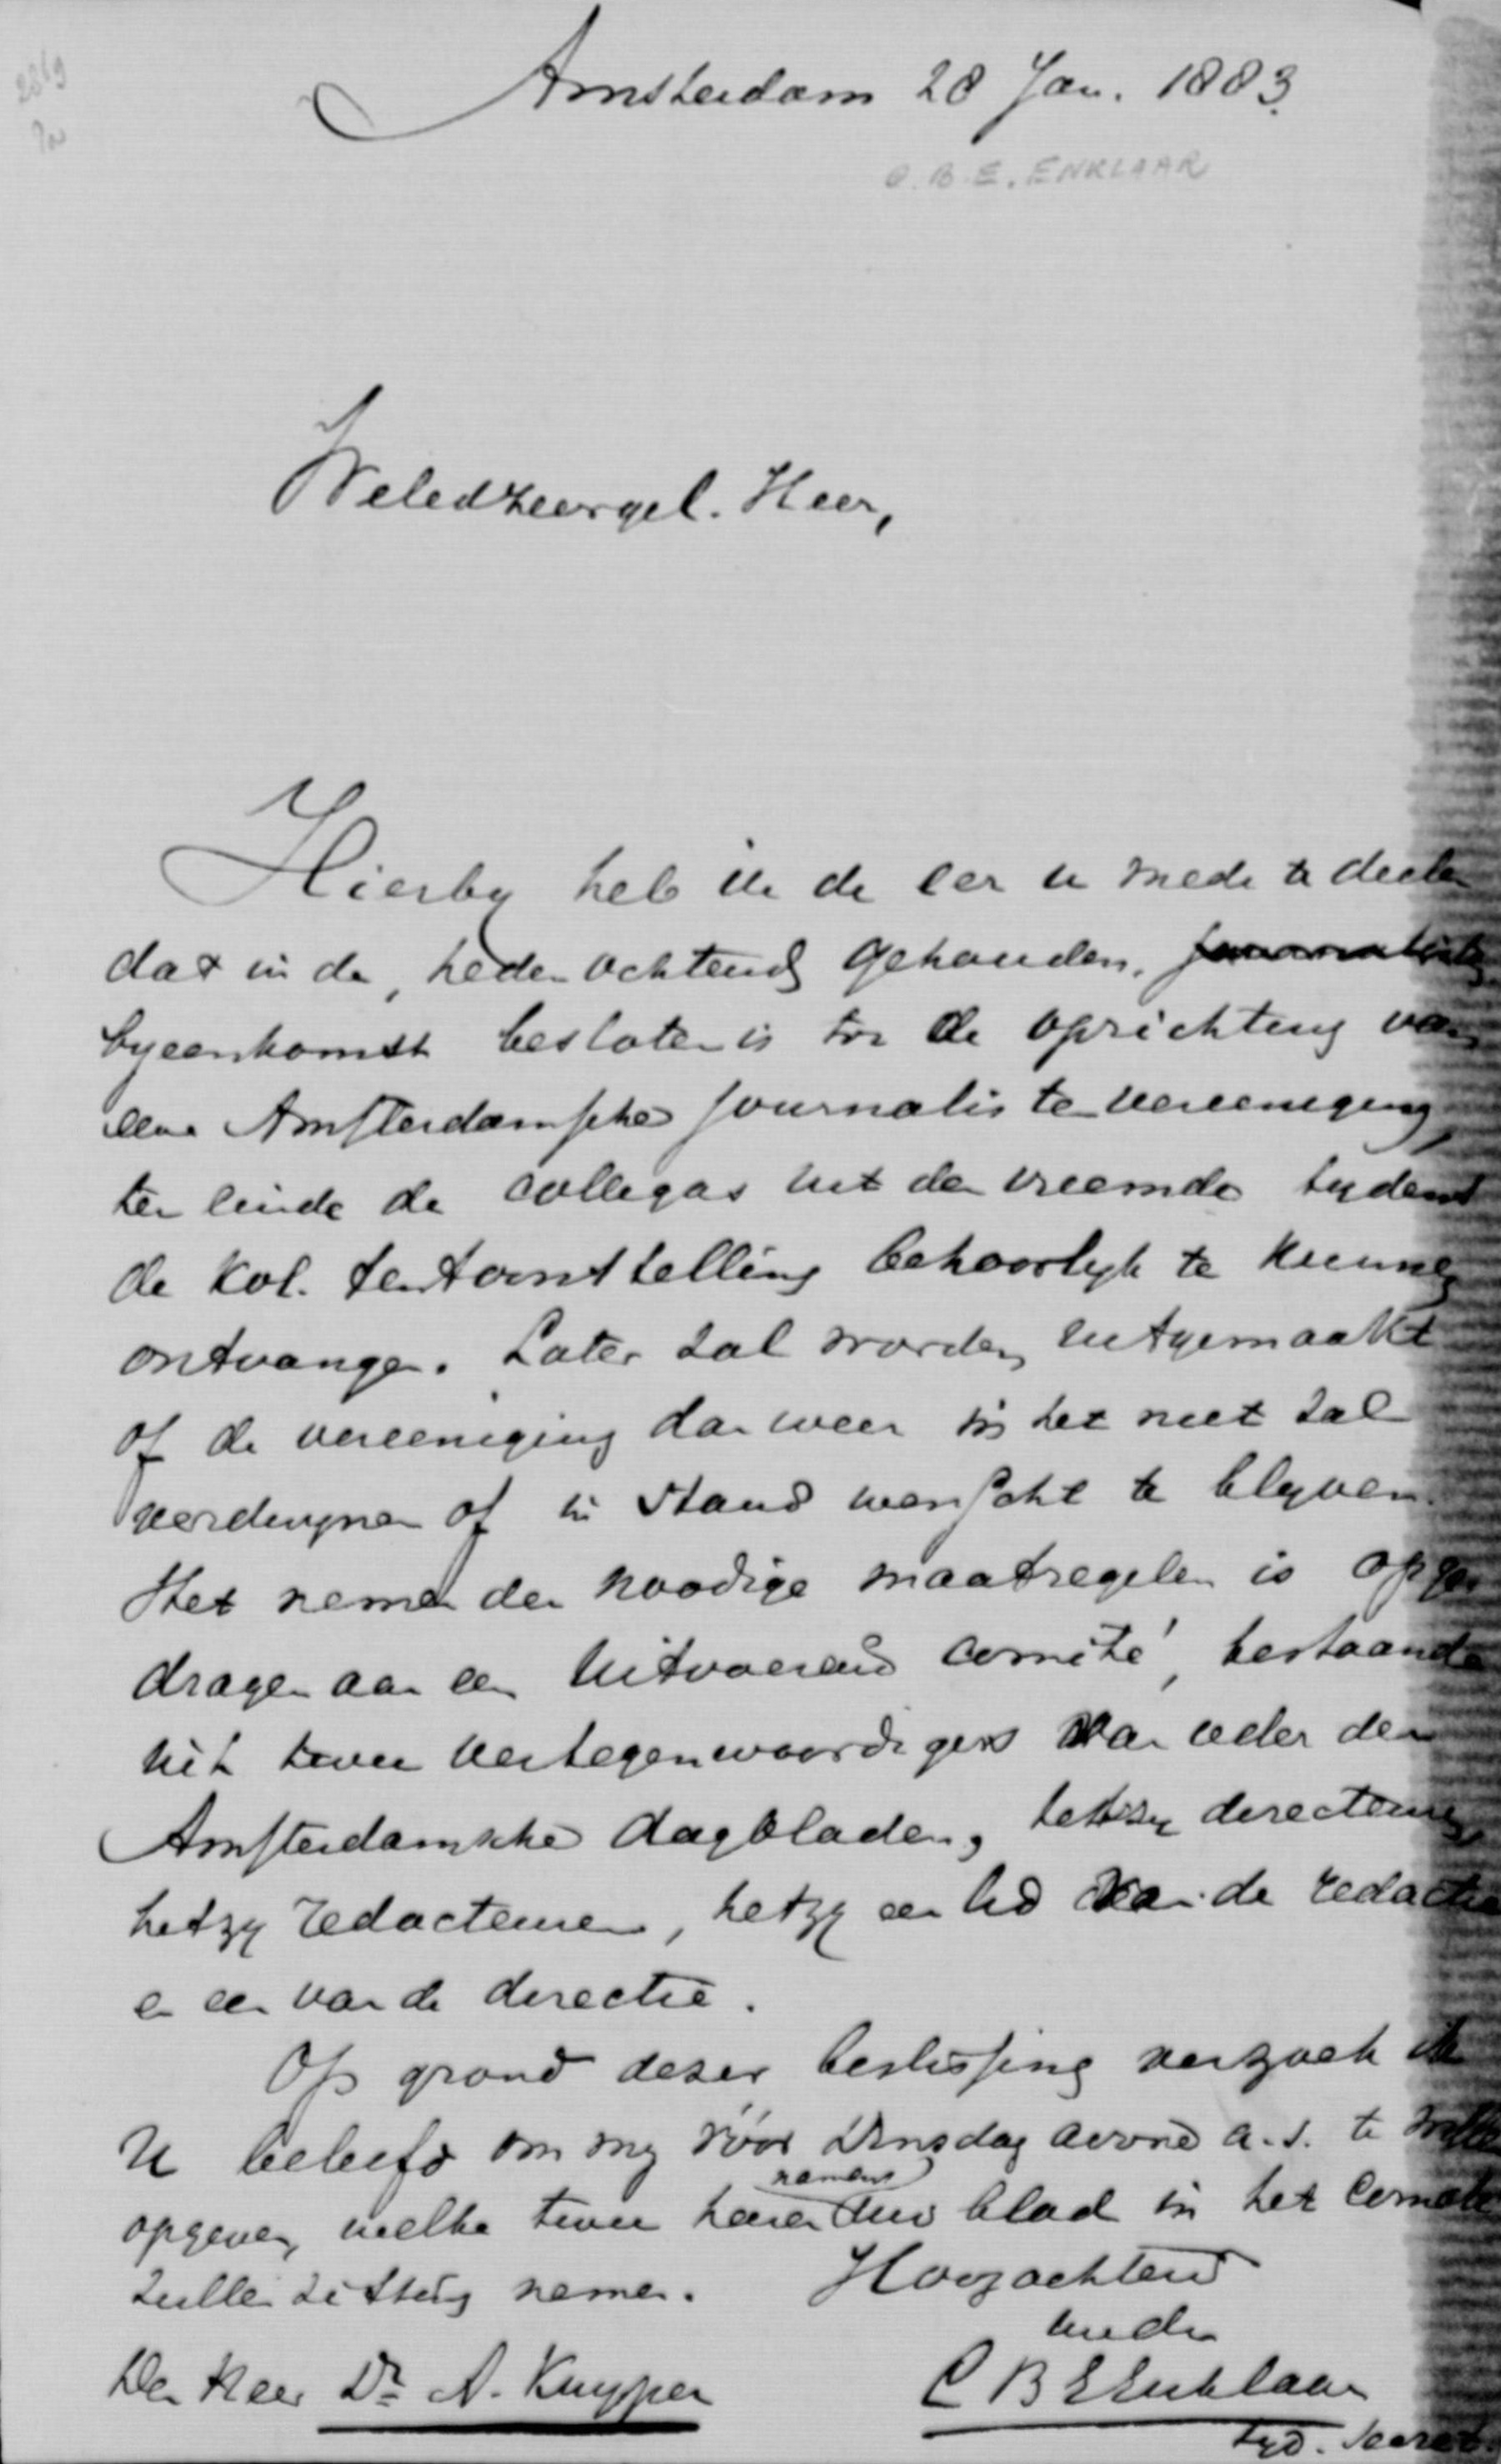 Amsterdam 28 Jan. 1883.
C. B. E. ENKLAAR
Weledzeergel. Heer,
Hierby heb ik de eer u mede te deelen
dat in de, heden ochtend gehouden,
byeenkomst besloten is tot de oprichting van
eene Amsterdamsche journalistenvereeniging,
ten einde de collegas uit den vreemde tydens
de Kol. tentoonstelling behoorlyk te kunnen
ontvangen. Later zal worden uitgemaakt
of de vereeniging dan weer in het niet zal
verdwynen of in stand wenscht te blyven.
Het nemen der noodige maatregelen is opge-
dragen aan een uitvoerend comité, bestaande
uit twee vertegenwoordigers van ieder der
Amsterdamsche dagbladen, hetzy directeuren,
hetzy redacteuren, hetzy een lid van de redactie
en een van de directie.
Op grond dezer beslissing verzoek ik
U beleefd om my vóór Dinsdag avond a.s. te willen
opgeven, welke twee heeren namens Uw blad in het Comité
zullen zitting nemen. Hoogachtend
Uw dr
Den Heer Dr A. Kuyper C B E Enklaar
tyd. Secret.